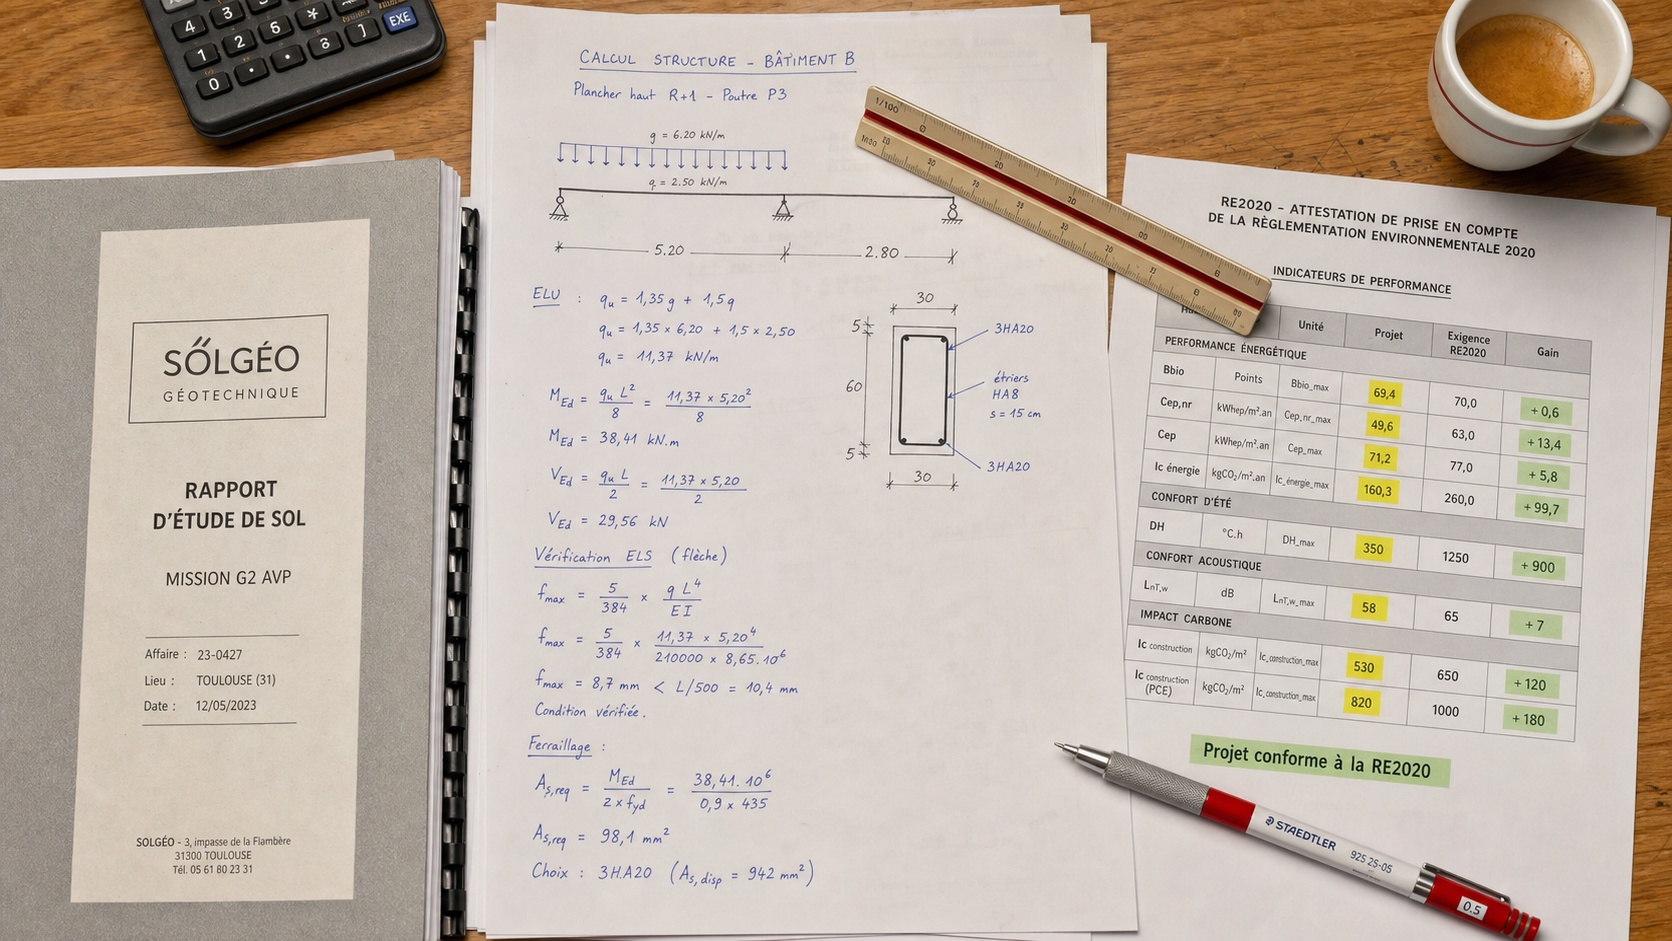 4 5 6 × ÷
1 2 3
0 EXE
SŐLGÉO
GÉOTECHNIQUE
RAPPORT
D'ÉTUDE DE SOL
MISSION G2 AVP
Affaire : 23-0427
Lieu : TOULOUSE (31)
Date : 12/05/2023
SOLGÉO - 3, impasse de la Flambère
31300 TOULOUSE
Tél. 05 61 80 23 31
CALCUL STRUCTURE - BÂTIMENT B
Plancher haut R+1 - Poutre P3
g = 6.20 kN/m
q = 2.50 kN/m
5.20 2.80
ELU : qu = 1,35 g + 1,5 q
qu = 1,35 × 6,20 + 1,5 × 2,50
qu = 11,37 kN/m
MEd = qu L² / 8 = 11,37 × 5,20² / 8
MEd = 38,41 kN.m
VEd = qu L / 2 = 11,37 × 5,20 / 2
VEd = 29,56 kN
30
5
60
5
30
3HA20
étriers
HA8
s = 15 cm
3HA20
Vérification ELS (flèche)
fmax = 5/384 × q L⁴ / EI
fmax = 5/384 × 11,37 × 5,20⁴ / 210000 × 8,65.10⁶
fmax = 8,7 mm < L/500 = 10,4 mm
Condition vérifiée.
Ferraillage :
As,req = MEd / z × fyd = 38,41.10⁶ / 0,9 × 435
As,req = 98,1 mm²
Choix : 3HA20 (As,disp = 942 mm²)
1/100
RE2020 - ATTESTATION DE PRISE EN COMPTE
DE LA RÈGLEMENTATION ENVIRONNEMENTALE 2020
INDICATEURS DE PERFORMANCE
Unité Projet Exigence RE2020 Gain
PERFORMANCE ÉNERGÉTIQUE
Bbio Points Bbio_max 69,4 70,0 + 0,6
Cep,nr kWhep/m².an Cep_nr_max 49,6 63,0 + 13,4
Cep kWhep/m².an Cep_max 71,2 77,0 + 5,8
Ic énergie kgCO₂/m².an Ic_énergie_max 160,3 260,0 + 99,7
CONFORT D'ÉTÉ
DH °C.h DH_max 350 1250 + 900
CONFORT ACOUSTIQUE
LnT,w dB LnT,w_max 58 65 + 7
IMPACT CARBONE
Ic construction kgCO₂/m² Ic_construction_max 530 650 + 120
Ic construction (PCE) kgCO₂/m² Ic_construction_max 820 1000 + 180
Projet conforme à la RE2020
STAEDTLER 925 25-05
0.5